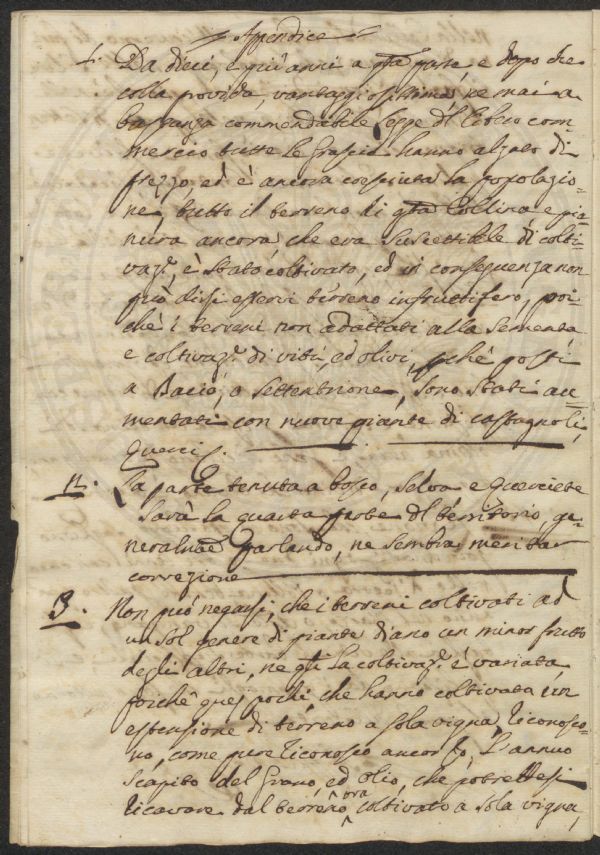 Appendice
1. Da dieci, e più anni a qta parte e dopo che
colla provida, vantaggiosissima, ne mai a
bastanza commendabile Legge dl libero com=
mercio tutte le Grascie hanno alzato di
prezzo, ed è ancora cresciuta la popolazio=
ne, tutto il terreno di qta Collina, e pia=
nura ancora, che era suscettibile di colti=
vaz.e, è stato coltivato, ed in conseguenza non
può dirsi esservi terreno infruttifero, poi=
chè i terreni non adattati alla sementa
e coltivaz.e di viti, ed olivi, pchè posti
a Bacìo, o settentrione, sono stati au=
mentati con nuove piante di castagnoli,
Querci.
2. La parte tenuta a bosco, selva e Querciete
sarà la quarta parte dl territorio, ge=
neralmte parlando, ne sembra meritar
correzione
3. Non può negarsi, che i terreni coltivati ad
un sol genere di piante diano un minor frutto
degli altri, ne qli la coltivaz.e è variata,
perchè quei pochi, che hanno coltivata un
estensione di terreno a sola vigna, riconosco=
no, come pure riconosco ancor Io, L'annuo
scapito del Grano, ed olio, che potrebbesi
ricavare dal terreno ora coltivato a sola vigna,